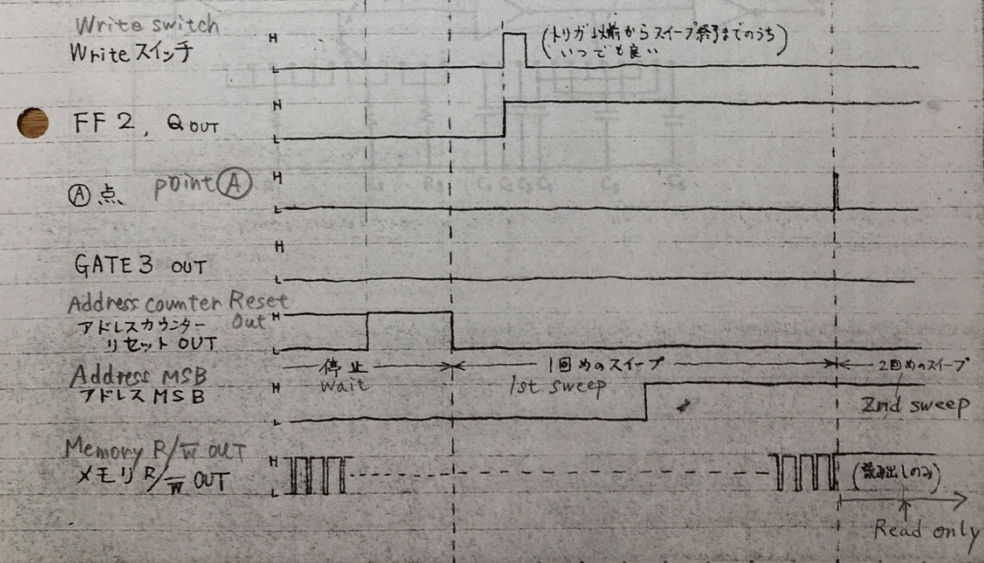 Write switch
Write スイッチ
H
L
(トリガ以前からスイープ終了までのうち
いつでも良い)
FF 2, Q OUT
H
L
Ⓐ点 point Ⓐ
H
L
GATE 3 OUT
H
L
Address counter Reset
Out
アドレスカウンター
リセット OUT
H
L
停止
wait
1回めのスイープ
1st sweep
2回めのスイープ
2nd sweep
Address MSB
アドレス MSB
H
L
Memory R/W̅ OUT
メモリ R/W̅ OUT
H
L
(読み出しのみ)
Read only